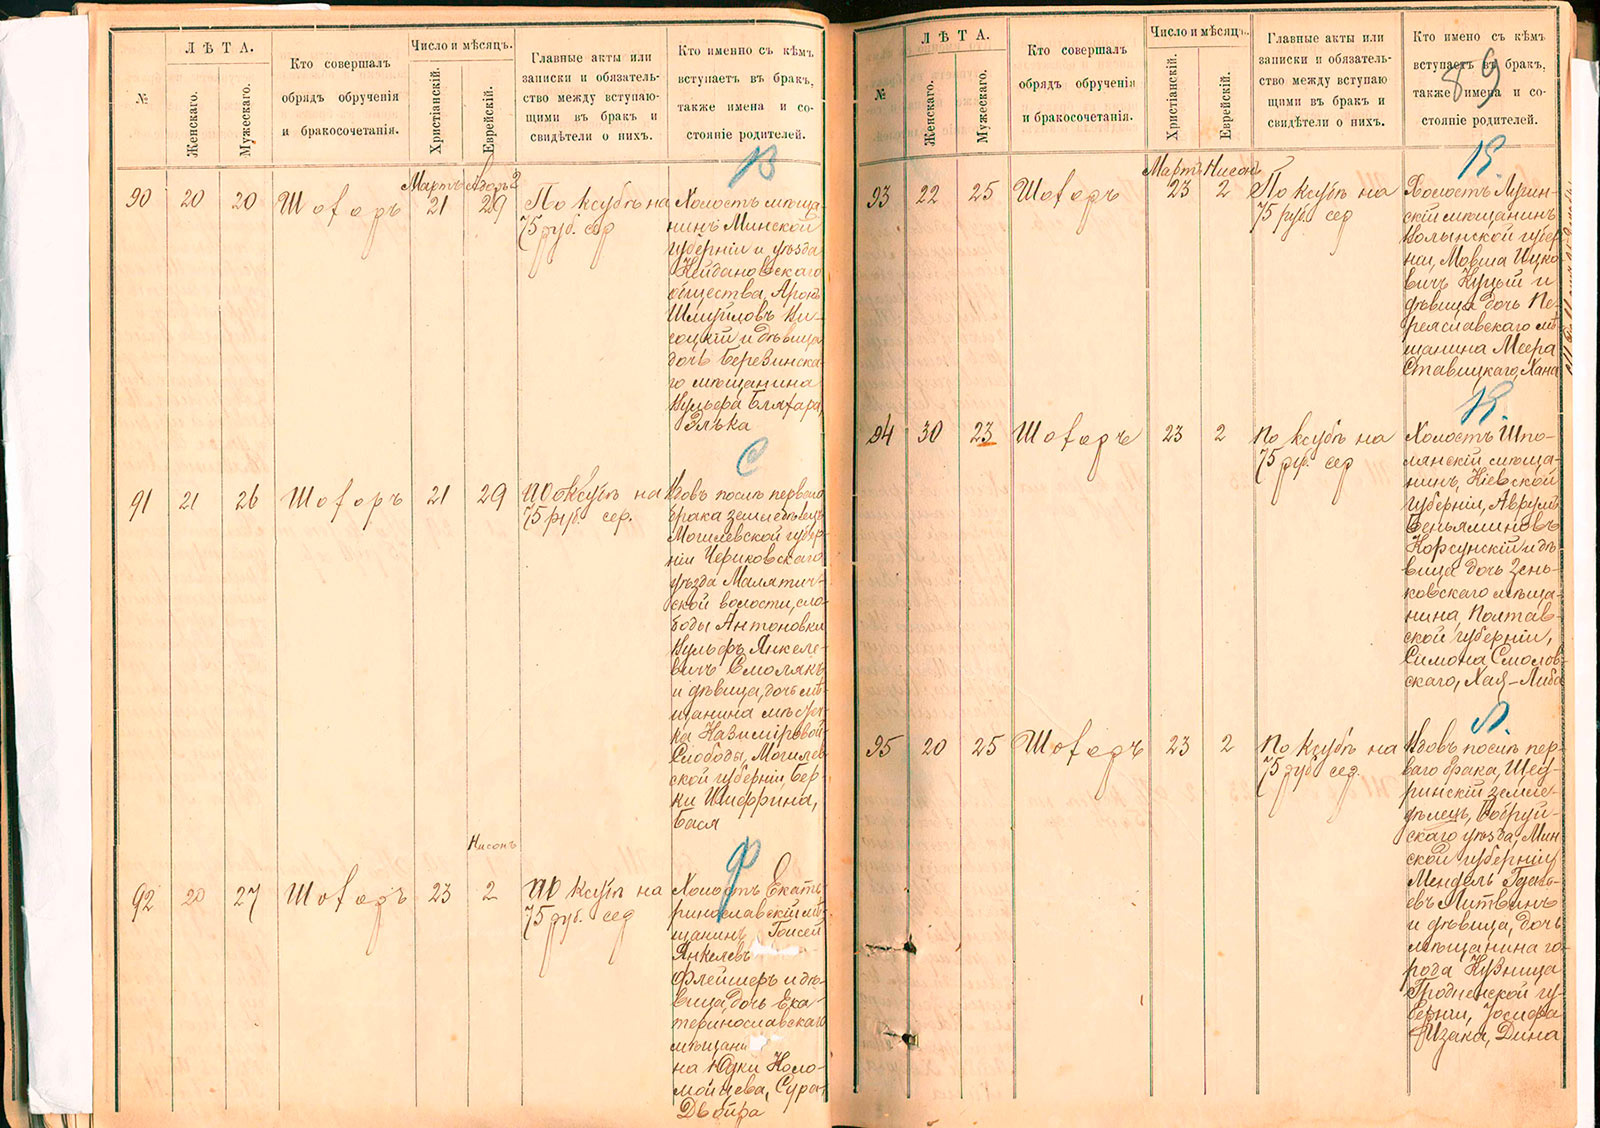 ЛѢТА.
№
Женскаго.
Мужескаго.
Кто совершалъ
обрядъ обрученія
и бракосочетанія.
Число и мѣсяцъ.
Христіанскій.
Еврейскій.
Главные акты или
записки и обязатель-
ство между вступаю-
щими въ бракъ и
свидѣтели о нихъ.
Кто именно съ кѣмъ
вступаетъ въ бракъ,
также имена и со-
стояніе родителей.
В
Мартъ Адоръ 2
90 20 20 Шоfоръ 21 29
По ксубѣ на
75 руб. сер
Холостъ мѣща-
нинъ Минской
губерніи и уѣзда
Койдановскаго
общества, Аронъ
Шмуйловъ Ви-
соцкій и дѣвица
дочь Березинска-
го мѣщанина
Вульфа Бляхера,
Элька
С
91 21 26 Шоfоръ 21 29
По ксубѣ на
75 руб. сер.
Вдовъ послѣ перваго
брака земледѣлецъ
Могилевской губер-
ніи Чериковскаго
уѣзда Малятич-
ской волости, сло-
боды Антоновки
Вульфъ Янкеле-
вичъ Смолякъ
и дѣвица, дочь мѣ-
щанина мѣстеч-
ка Казиміровой
Слободы, Могилев-
ской губерніи, Бер-
ки Шифрина,
Бася
Нисонъ
Ф
92 20 27 Шоfоръ 23 2
По ксубѣ на
75 руб. сер
Холостъ Екате-
ринославскій мѣ-
щанинъ
Янкелевъ
Флейшеръ и дѣ-
вица, дочь Ека-
теринославскаго
мѣщани
на Юдки Коло-
мойцева, Сура-
Двойра
ЛѢТА.
№
Женскаго.
Мужескаго.
Кто совершалъ
обрядъ обрученія
и бракосочетанія.
Число и мѣсяцъ.
Христіанскій.
Еврейскій.
Главные акты или
записки и обязатель-
ство между вступаю
щими въ бракъ и
свидѣтели о нихъ.
Кто имено съ кѣмъ
вступаетъ въ бракъ,
также имена и со-
стояніе родителей.
89
К.
Мартъ Нисонъ
93 22 25 Шоfоръ 23 2
По ксубѣ на
75 руб. сер
Холостъ
скій мѣщанинъ
Волынской губер-
ніи, Мовша Ицко
вичъ Куцый и
дѣвица дочь Пе-
реяславскаго мѣ-
щанина Меера
Ставицкаго, Хана
К.
94 30 23 Шоfоръ 23 2
По ксубѣ на
75 руб. сер
Холостъ Шпо-
лянскій мѣща-
нинъ, Кіевской
губерніи, Аврумъ
Беньяминовъ
Корсунскій и дѣ-
вица дочь Зень-
ковскаго мѣща-
нина Полтав-
ской губерніи,
Симона Смолов-
скаго, Хая-Либа
Л.
95 20 25 Шоfоръ 23 2
По ксубѣ на
75 руб сер.
Вдовъ послѣ пер-
ваго брака, Щед-
ринскій земле-
дѣлецъ, Бобруй-
скаго уѣзда, Мин
ской губерніи
Мендель
евъ Литвинъ
и дѣвица, дочь
мѣщанина го-
рода Кузница
Гродненской гу-
берніи, Іосифа
Изака, Дина